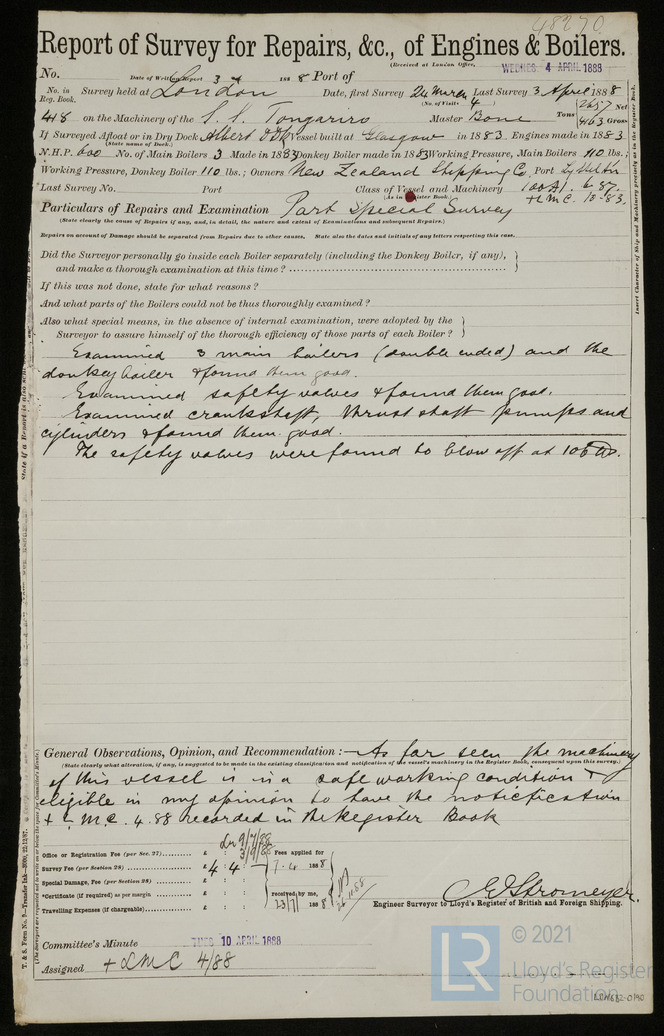 48270
Report of Survey for Repairs, &c., of Engines & Boilers.
(Received at London Office, WEDNES. 4 APRIL 1888
No. Date of Writing Report 3 1888 Port of
No. in Reg. Book. Survey held at London Date, first Survey 24 March Last Survey 3 April 1888
(No. of Visits 4)
418 on the Machinery of the S. S. Tongariro Master Bone Tons 2657 Net 4163 Gross
If Surveyed Afloat or in Dry Dock Albert Dk Vessel built at Glasgow in 1883 Engines made in 1883
(State name of Dock.)
N.H.P. 600 No. of Main Boilers 3 Made in 1883 Donkey Boiler made in 1883 Working Pressure, Main Boilers 110 lbs.;
Working Pressure, Donkey Boiler 110 lbs.; Owners New Zealand Shipping Co. Port Lyttelton
Last Survey No. Port Class of Vessel and Machinery 100A1. 6.87.
(As in Register Book.) +LMC. 10.83.
Particulars of Repairs and Examination Part Special Survey
(State clearly the cause of Repairs if any, and, in detail, the nature and extent of Examinations and subsequent Repairs.)
Repairs on account of Damage should be separated from Repairs due to other causes. State also the dates and initials of any letters respecting this case.
Did the Surveyor personally go inside each Boiler separately (including the Donkey Boiler, if any),
and make a thorough examination at this time?
If this was not done, state for what reasons?
And what parts of the Boilers could not be thus thoroughly examined?
Also what special means, in the absence of internal examination, were adopted by the
Surveyor to assure himself of the thorough efficiency of those parts of each Boiler?
Examined 3 main boilers (double ended) and the
donkey boiler & found them good.
Examined safety valves & found them good.
Examined crankshaft, thrust shaft pumps and
cylinders & found them good.
The safety valves were found to blow off at 106 lbs.
General Observations, Opinion, and Recommendation:— As far seen the machinery
(State clearly what alteration, if any, is suggested to be made in the existing classification and notification of the vessel's machinery in the Register Book, consequent upon this survey.)
of this vessel is in a safe working condition &
eligible in my opinion to have the notictfication
+ LMC. 4.88 recorded in the Register Book
9/7/88
3/9/88
Office or Registration Fee (per Sec. 27) £ : :
Survey Fee (per Section 28) £ 4 : 4 :
Special Damage, Fee (per Section 28) £ : :
*Certificate (if required) as per margin £ : :
Travelling Expenses (if chargeable) £ : :
Fees applied for
7.4 1888
received by me,
23/7 1888
C E Stromeyer.
Engineer Surveyor to Lloyd's Register of British and Foreign Shipping.
Committee's Minute TUES 10 APRIL 1888
Assigned + LMC 4/88
T. & S. Form No. 9—Transfer Ink—3000, 22/12/87.
Insert Character of Ship and Machinery precisely as in the Register Book.
LR
© 2021
Lloyd's Register
Foundation